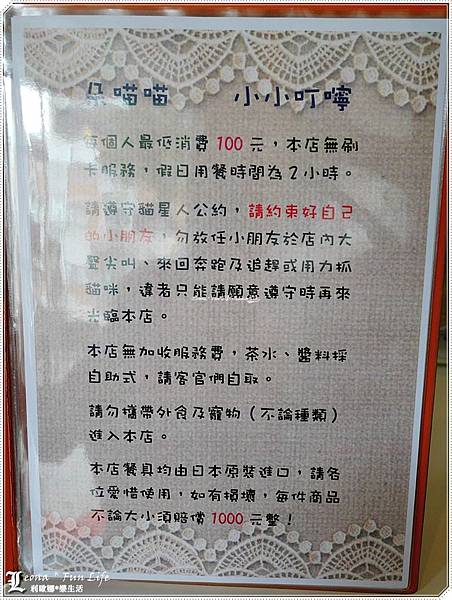 朵喵喵 小小叮嚀
每個人最低消費 100 元，本店無刷
卡服務，假日用餐時間為 2 小時。
請遵守貓星人公約，請約束好自己
的小朋友，勿放任小朋友於店內大
聲尖叫、來回奔跑及追趕或用力抓
貓咪，違者只能請願意遵守時再來
光臨本店。
本店無加收服務費，茶水、醬料採
自助式，請客官們自取。
請勿攜帶外食及寵物（不論種類）
進入本店。
本店餐具均由日本原裝進口，請各
位愛惜使用，如有損壞，每件商品
不論大小須賠償 1000 元整！
Leona * Fun Life
利歐娜*樂生活